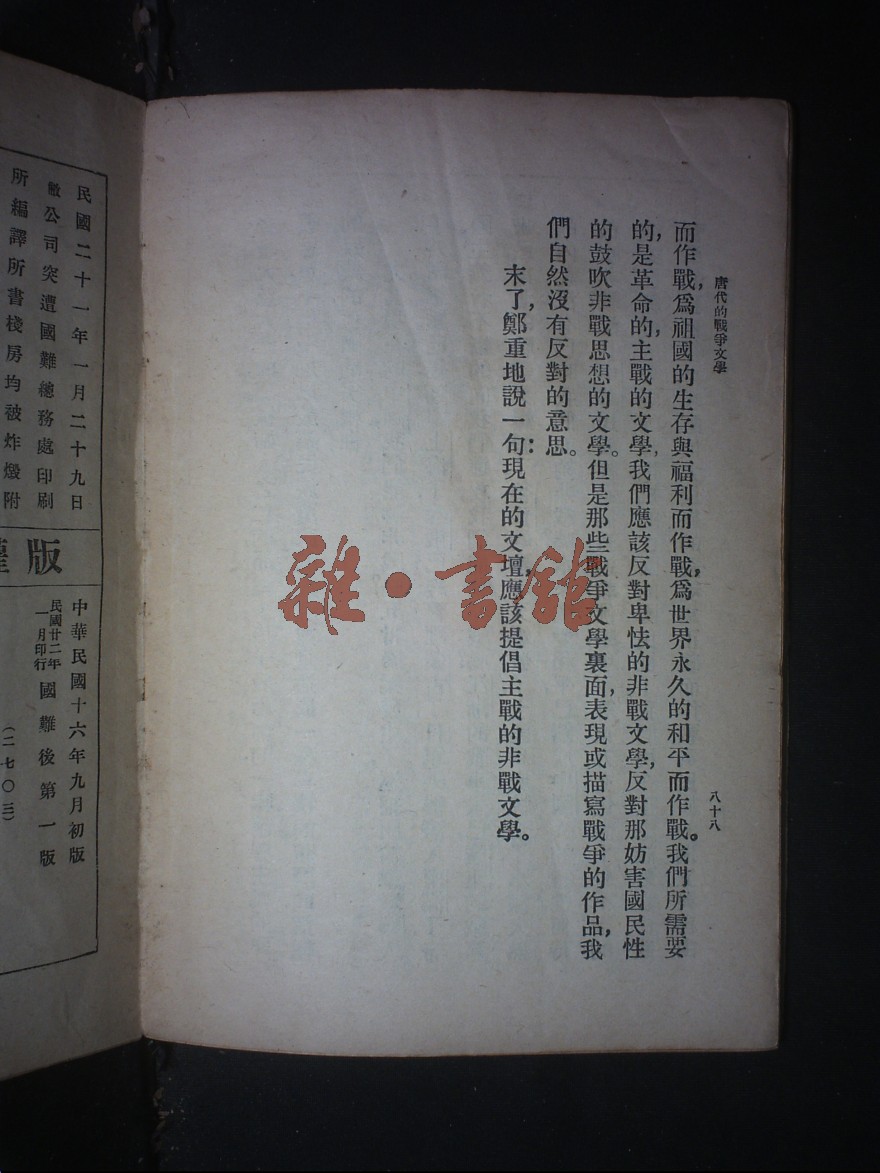 唐代的戰爭文學
八十八
而作戰，爲祖國的生存與福利而作戰，爲世界永久的和平而作戰。我們所需要
的，是革命的，主戰的文學，我們應該反對卑怯的非戰文學，反對那妨害國民性
的鼓吹非戰思想的文學。但是那些戰爭文學裏面，表現或描寫戰爭的作品，我
們自然沒有反對的意思。
末了，鄭重地說一句：現在的文壇，應該提倡主戰的非戰文學。
雜·書舘
民國二十一年一月二十九日
敝公司突遭國難總務處印刷
所編譯所書棧房均被炸燬附
版
中華民國十六年九月初版
民國廿二年
一月印行
國難後第一版
(二七〇三)